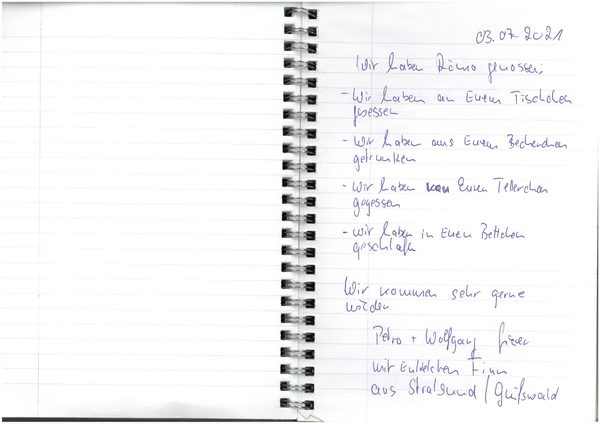 03.07.2021
Wir haben Römö genossen:
- Wir haben an Eurem Tischchen
gesessen
- Wir haben aus Eurem Becherchen
getrunken
- Wir haben von Euren Tellerchen
gegessen
- Wir haben in Euren Bettchen
geschlafen
Wir kommen sehr gerne
wieder
Petra + Wolfgang
mit Enkelchen Finn
aus Stralsund / Greifswald